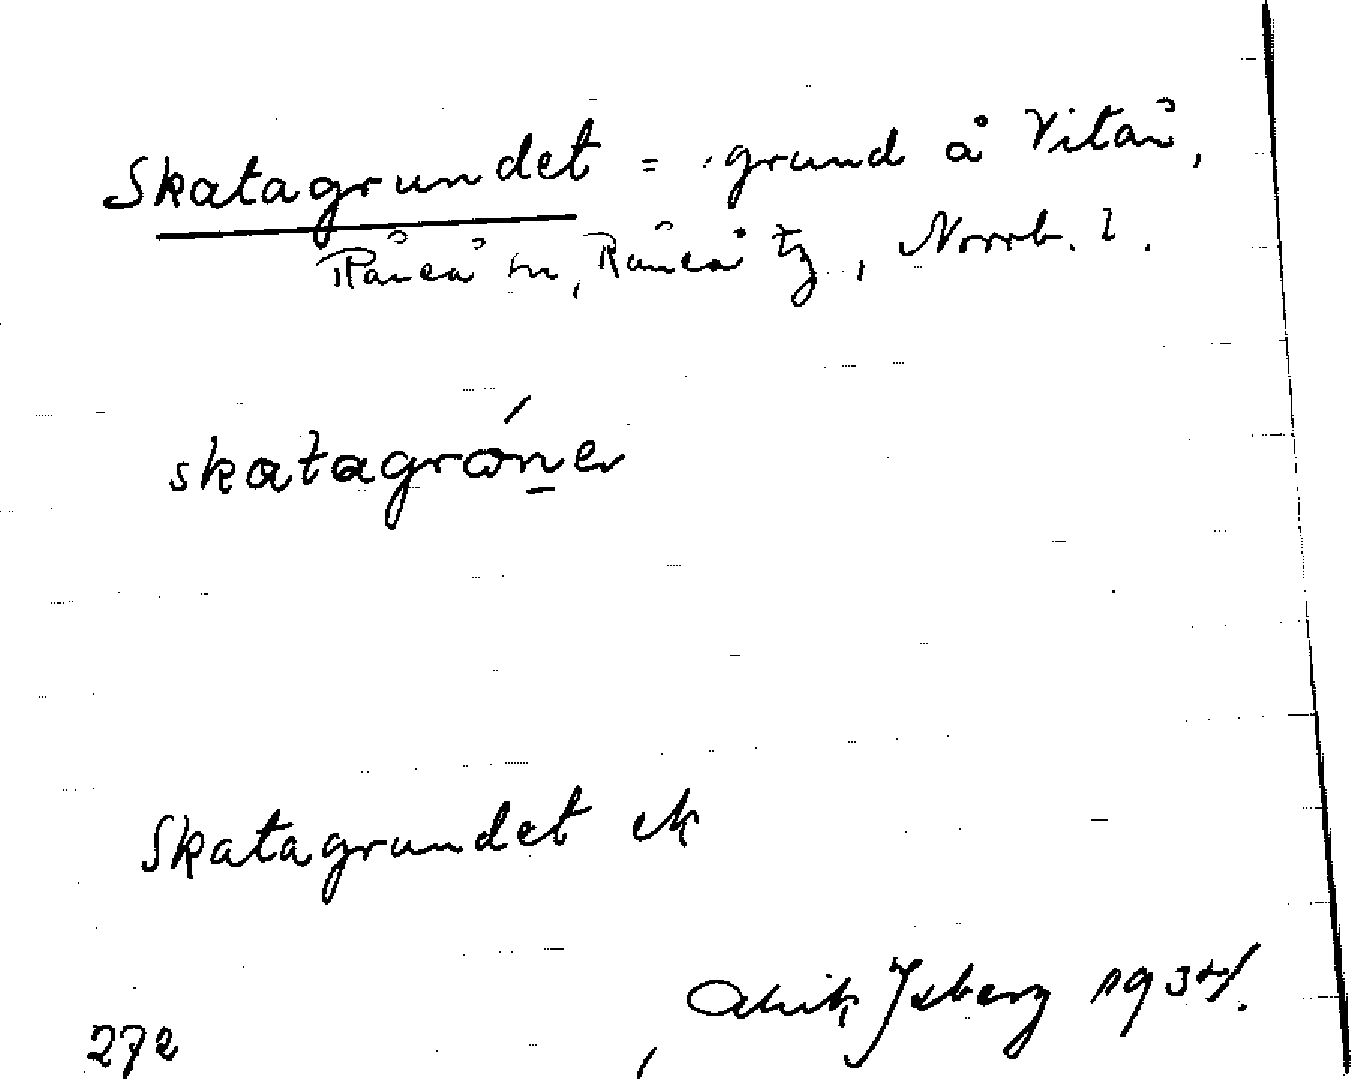 Skatagrundet = grund å Vitån,
Råneå sn, Råneå tg, Norrb. l.
skatagrωṉer
Skatagrundet ek
Alrik Isberg 1934.
272